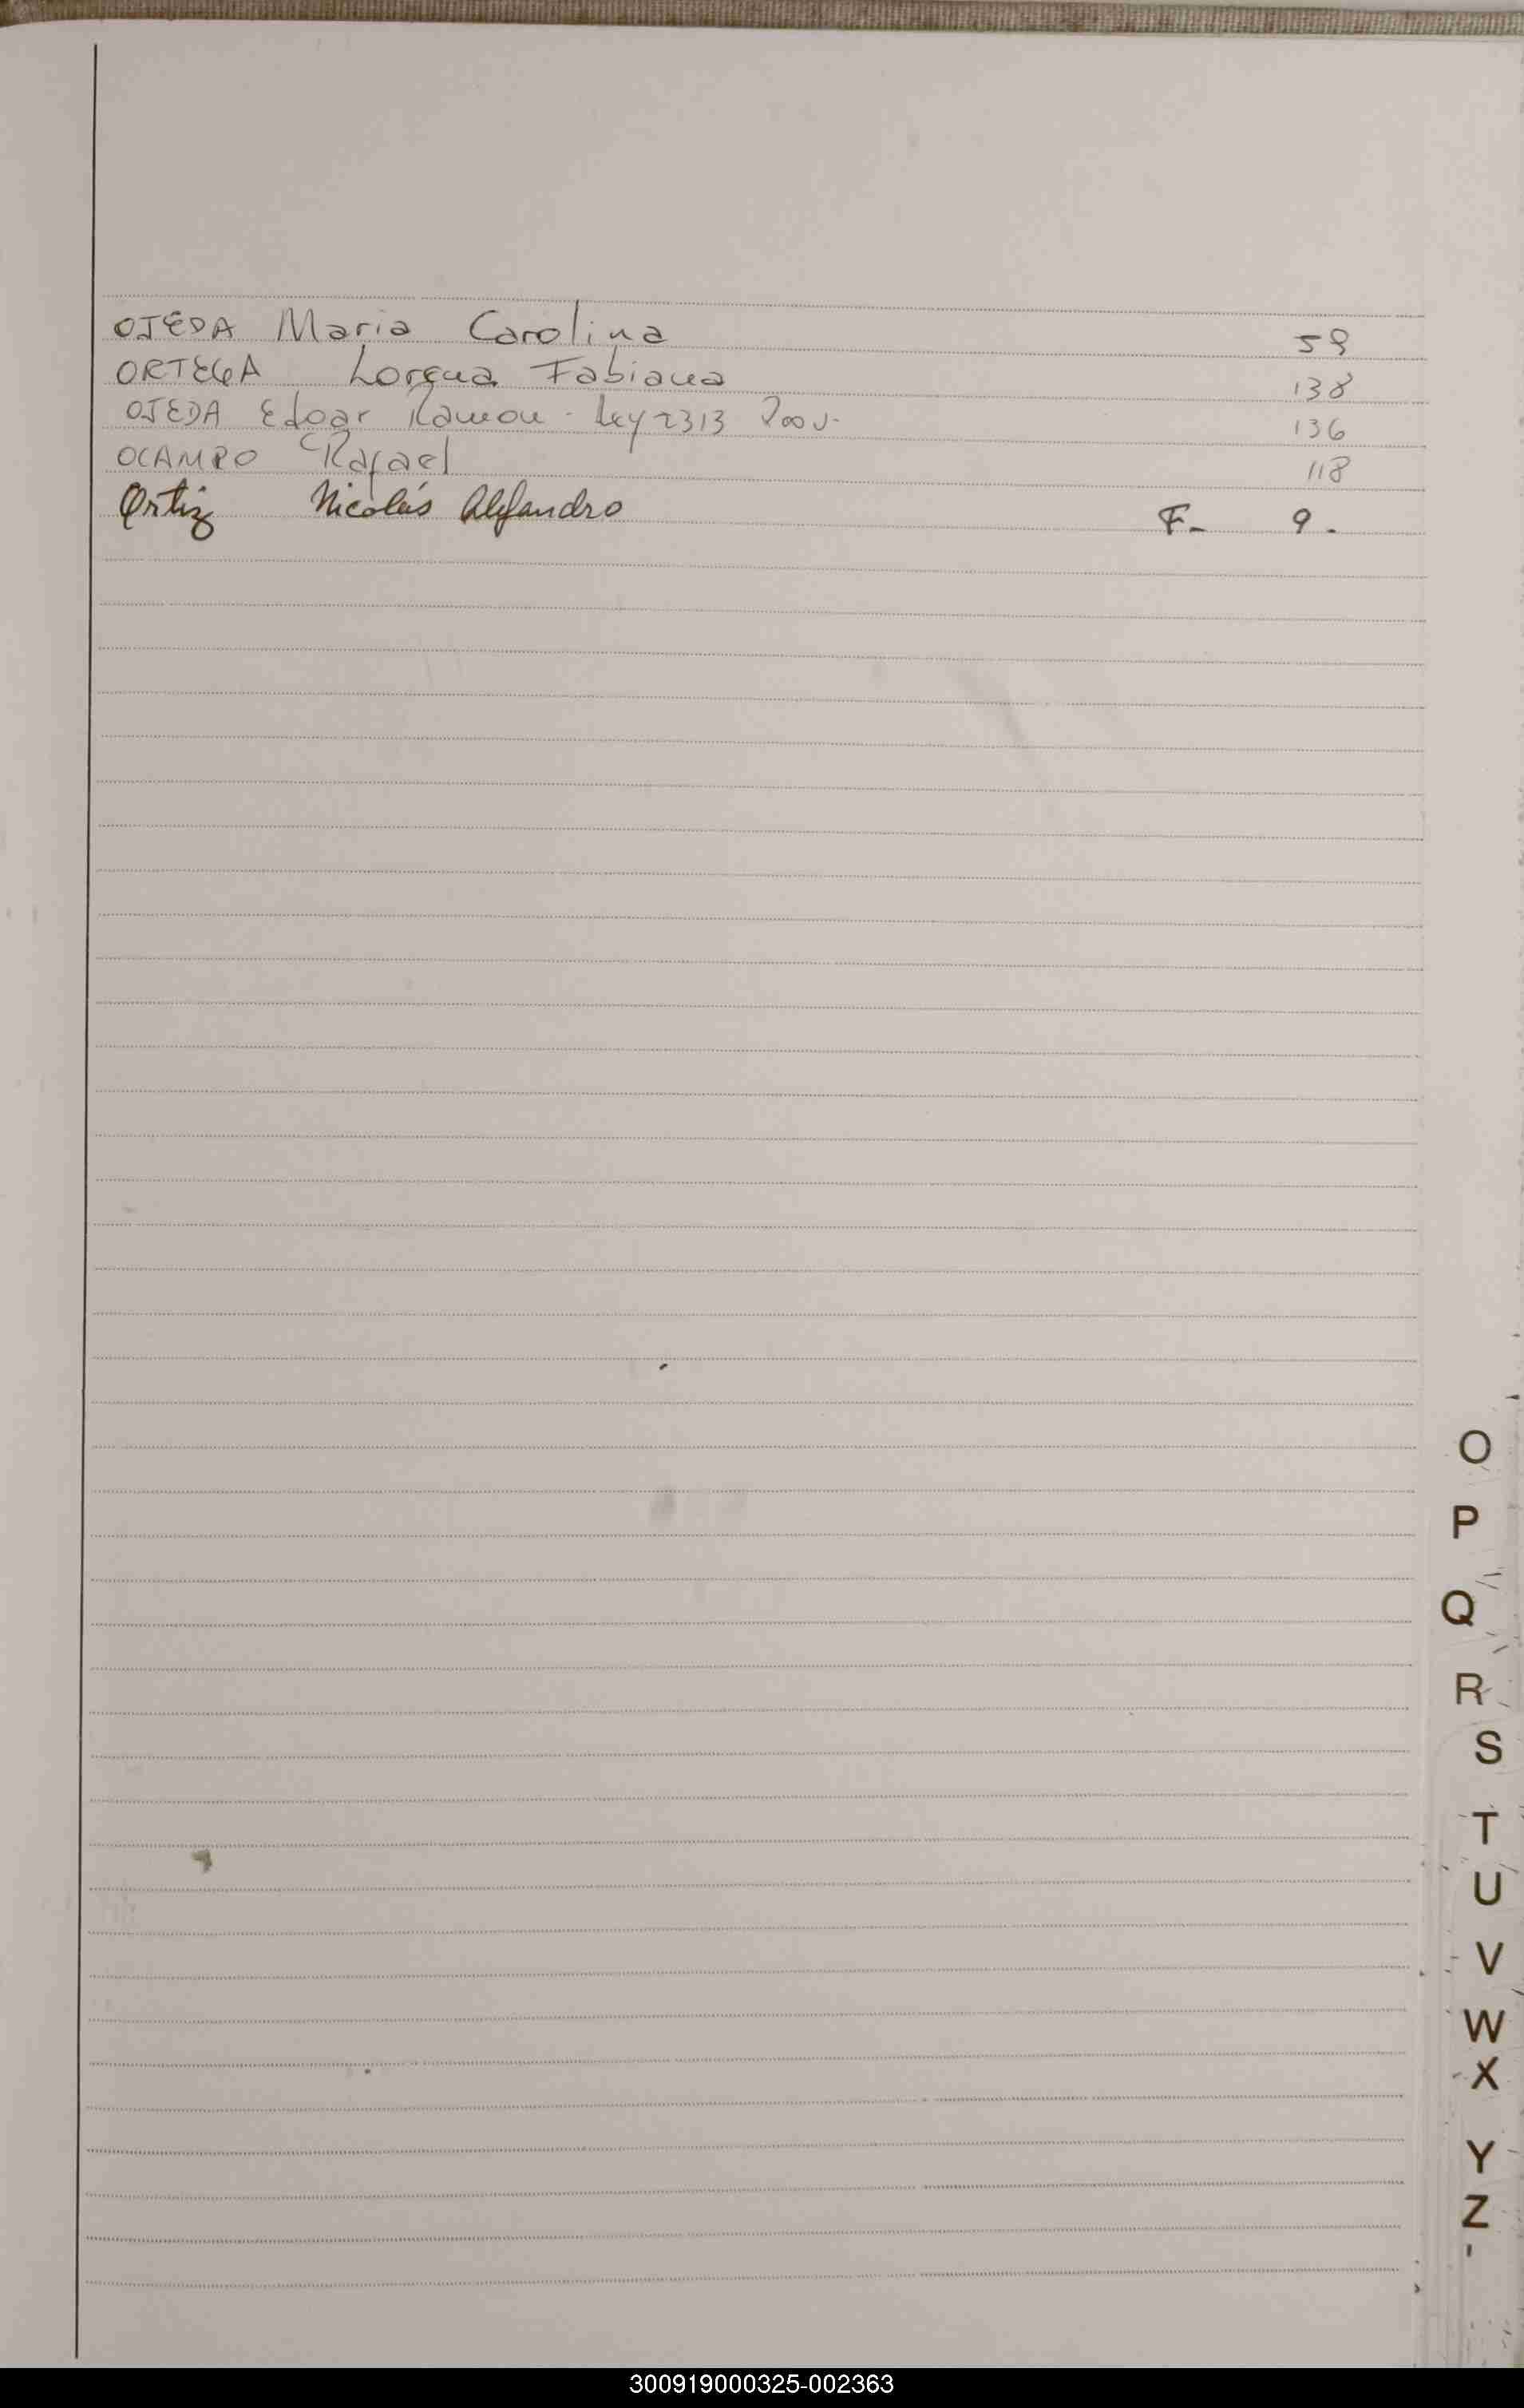 OJEDA Maria Carolina 59
ORTEGA Lorena Fabiana 138
OJEDA Edgar Ramon - Ley 2313 136
OCAMPO Rafael 118
Ortiz Nicolás Alejandro F- 9.
O
P
Q
R
S
T
U
V
W
X
Y
Z
300919000325-002363